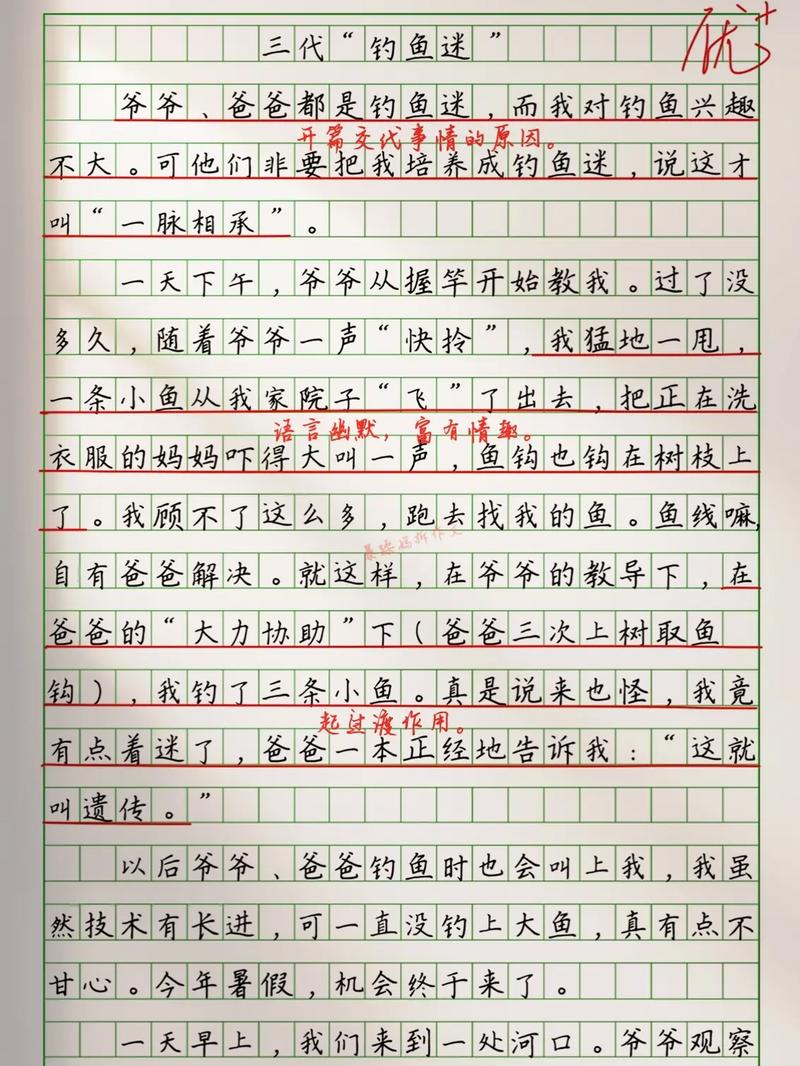 三代“钓鱼迷”
优+
爷爷、爸爸都是钓鱼迷，而我对钓鱼兴趣
开篇交代事情的原因。
不大。可他们非要把我培养成钓鱼迷，说这才
叫“一脉相承”。
一天下午，爷爷从握竿开始教我。过了没
多久，随着爷爷一声“快拎”，我猛地一甩，
一条小鱼从我家院子“飞”了出去，把正在洗
语言幽默，富有情趣。
衣服的妈妈吓得大叫一声，鱼钩也钩在树枝上
了。我顾不了这么多，跑去找我的鱼。鱼线嘛，
自有爸爸解决。就这样，在爷爷的教导下，在
爸爸的“大力协助”下（爸爸三次上树取鱼
钩），我钓了三条小鱼。真是说来也怪，我竟
起过渡作用。
有点着迷了，爸爸一本正经地告诉我：“这就
叫遗传。”
以后爷爷、爸爸钓鱼时也会叫上我，我虽
然技术有长进，可一直没钓上大鱼，真有点不
甘心。今年暑假，机会终于来了。
一天早上，我们来到一处河口。爷爷观察